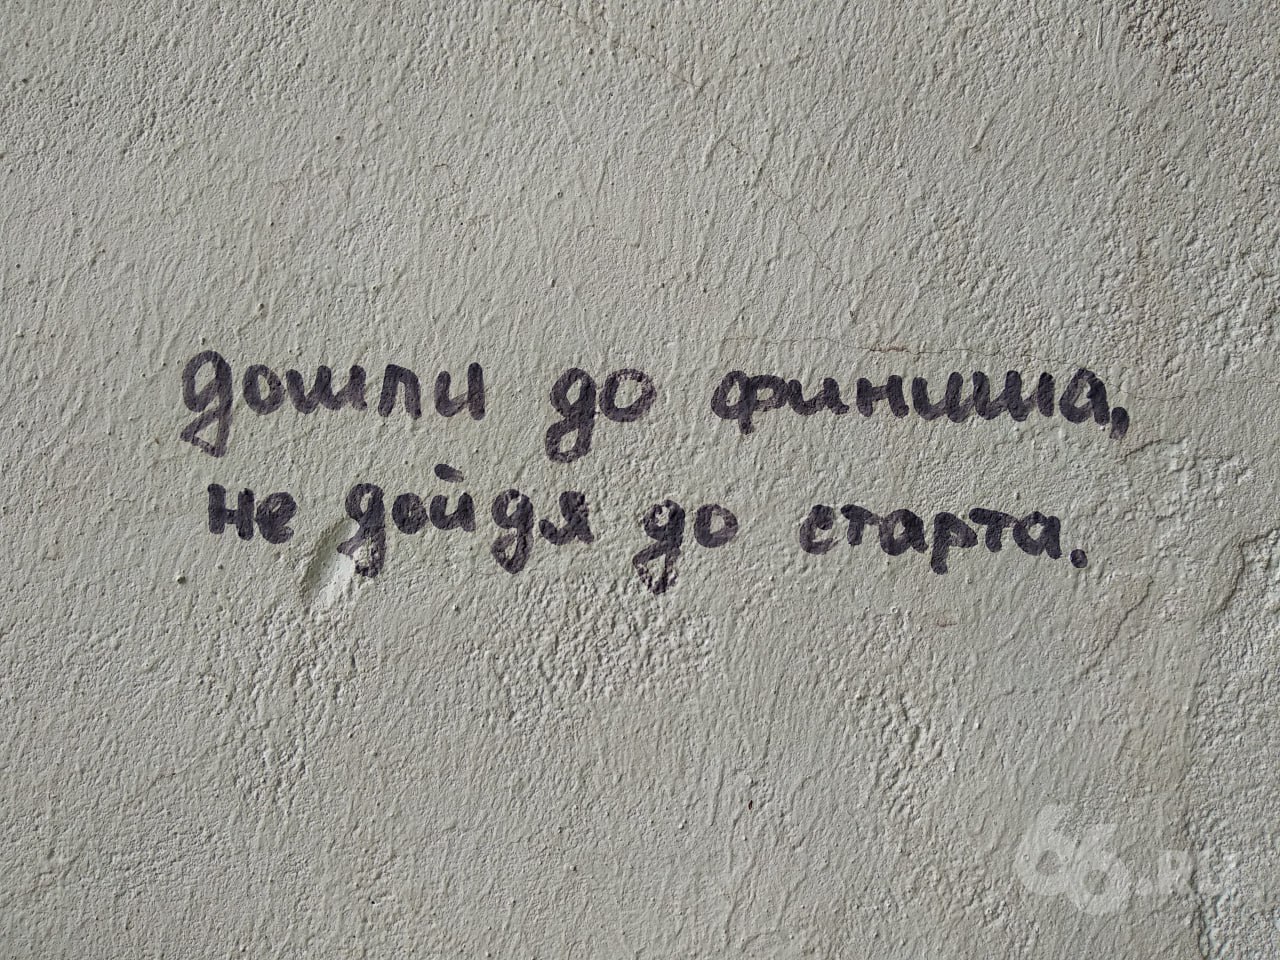 дошли до финиша,
не дойдя до старта.
66.RU